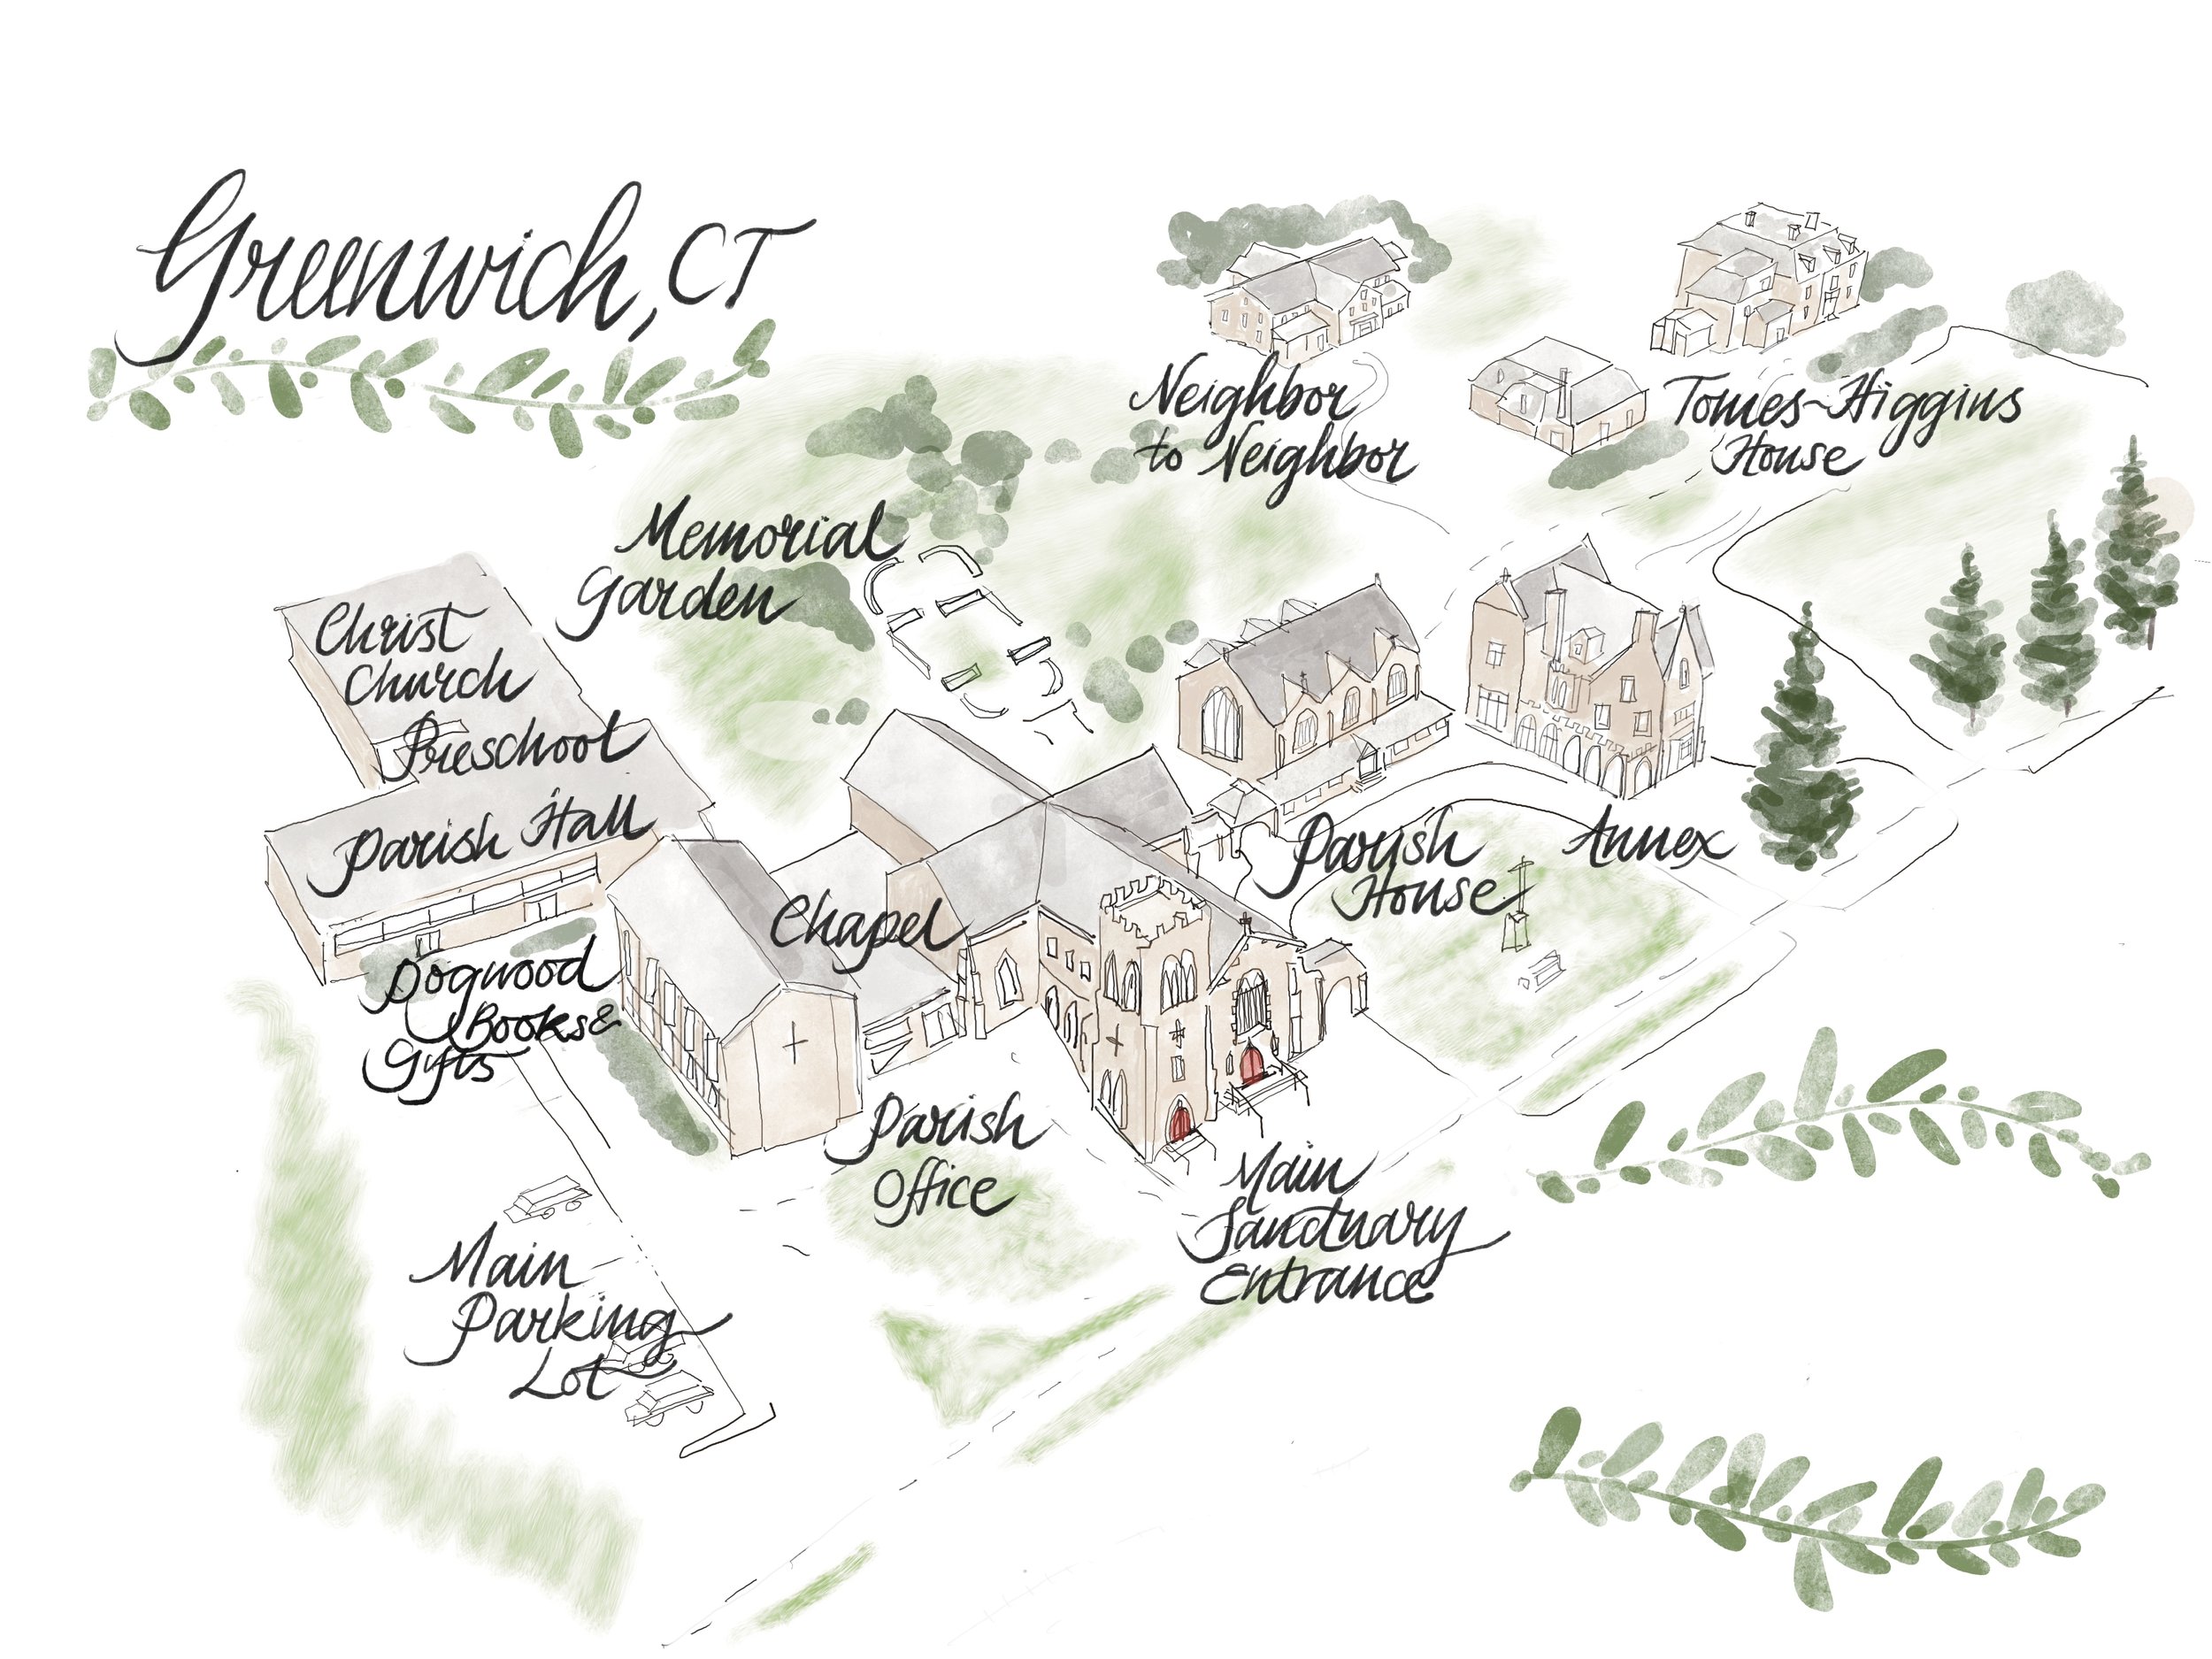 Greenwich, CT
Neighbor
to Neighbor
Tomes-Higgins
House
Memorial
Garden
Christ
Church
Preschool
Parish Hall
Chapel
Parish
House
Annex
Dogwood
Books &
Gifts
Parish
Office
Main
Sanctuary
Entrance
Main
Parking
Lot